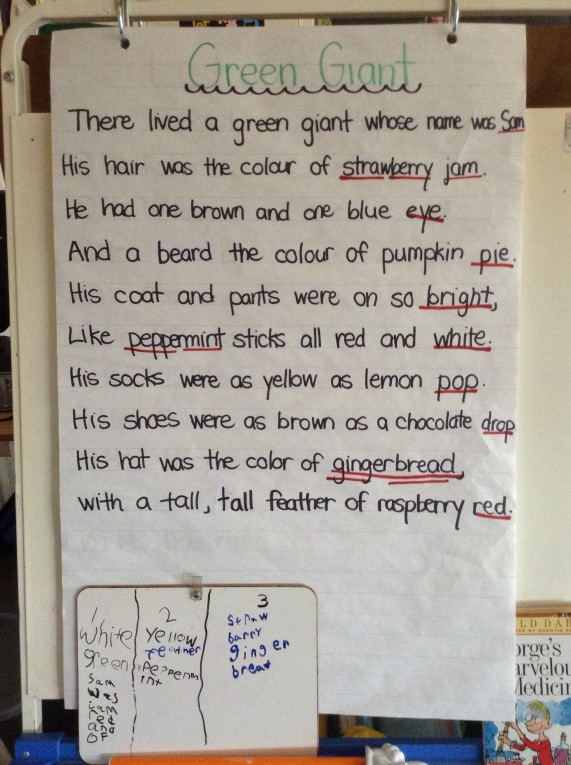 Green Giant
There lived a green giant whose name was Sam
His hair was the colour of strawberry jam.
He had one brown and one blue eye.
And a beard the colour of pumpkin pie.
His coat and pants were on so bright,
Like peppermint sticks all red and white.
His socks were as yellow as lemon pop.
His shoes were as brown as a chocolate drop
His hat was the color of gingerbread,
with a tall, tall feather of raspberry red.
1
White
green
Sam
Was
jam
red
and
OF
2
Yellow
Pepperm
int
3
Straw
barry
ginger
breat
LD DA
orge's
arvelou
Medicin